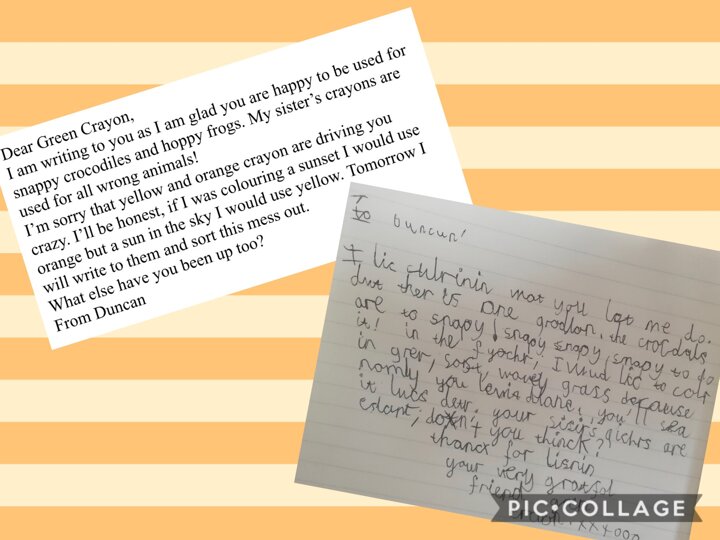 Dear Green Crayon,
I am writing to you as I am glad you are happy to be used for
snappy crocodiles and hoppy frogs. My sister's crayons are
used for all wrong animals!
I'm sorry that yellow and orange crayon are driving you
crazy. I'll be honest, if I was colouring a sunset I would use
orange but a sun in the sky I would use yellow. Tomorrow I
will write to them and sort this mess out.
What else have you been up too?
From Duncan
to Duncun!
I lic culrinin you let me do.
but ther is one the
are to snapy! snapy snapy snapy to do
it! in the I lic to colr
in soft, wavey grass because
nomly you you'll sea
it lucs your are
don't you thinck?
thancs for lisnin
your very gratful
friend
PIC•COLLAGE